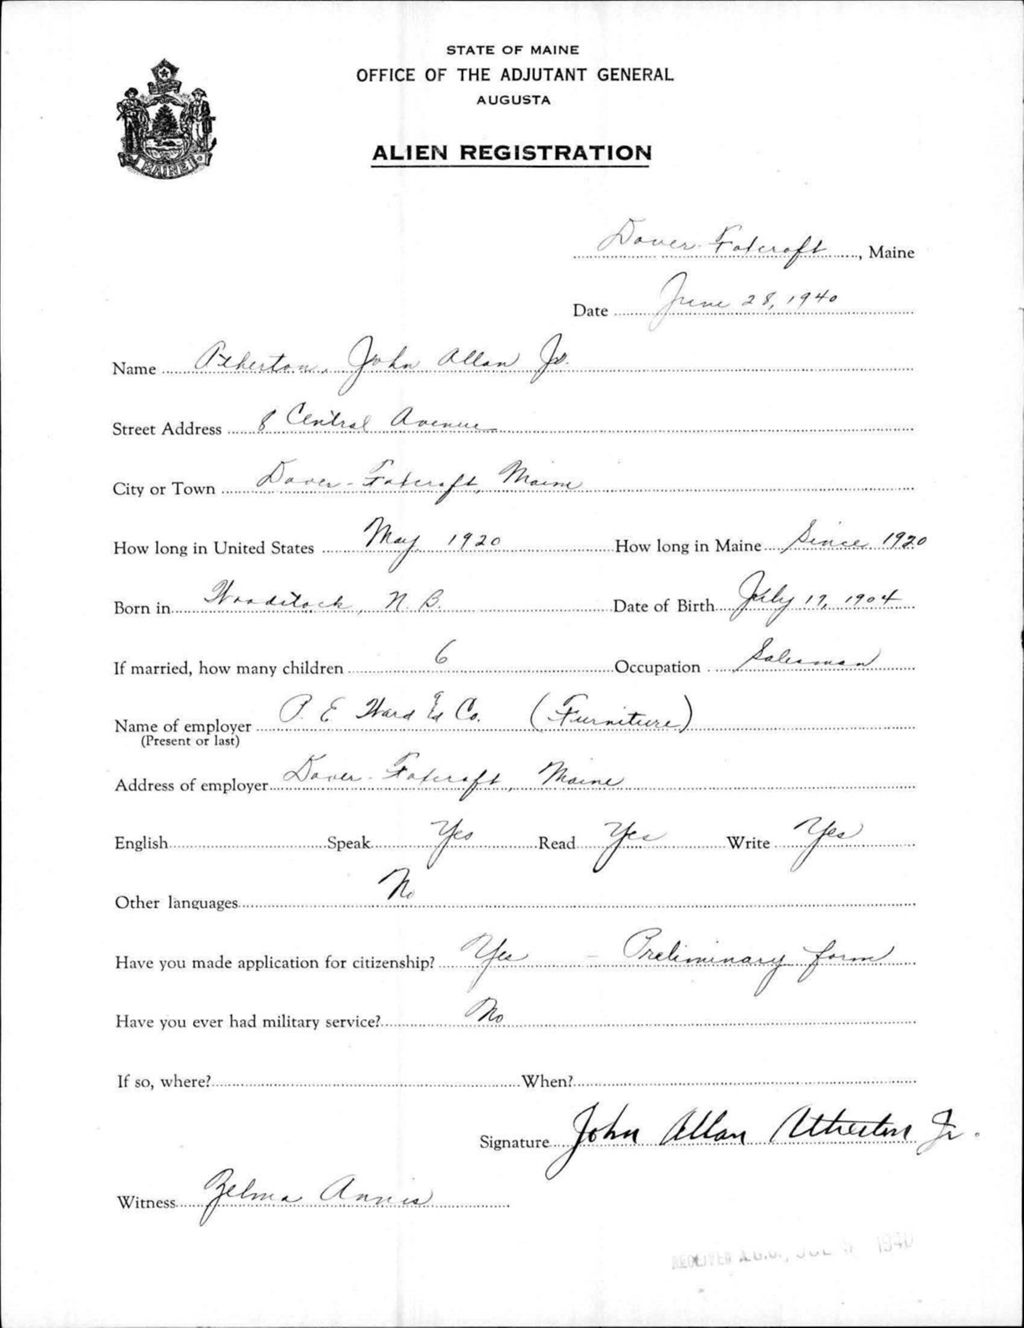 STATE OF MAINE
OFFICE OF THE ADJUTANT GENERAL
AUGUSTA
ALIEN REGISTRATION
MAINE
Dover-Foxcroft, Maine
Date June 28, 1940
Name Atherton, John Allan Jr.
Street Address 8 Central Avenue
City or Town Dover-Foxcroft, Maine
How long in United States May 1920 How long in Maine Since 1920
Born in Woodstock, N.B. Date of Birth July 17, 1904
If married, how many children 6 Occupation Salesman
Name of employer P. E. Ward & Co. (Furniture)
(Present or last)
Address of employer Dover-Foxcroft, Maine
English Speak Yes Read Yes Write Yes
Other languages No
Have you made application for citizenship? Yes - Preliminary form
Have you ever had military service? No
If so, where? When?
Signature John Allan Atherton Jr.
Witness Zelma Annis
RECEIVED A.G.O., JUL 1940